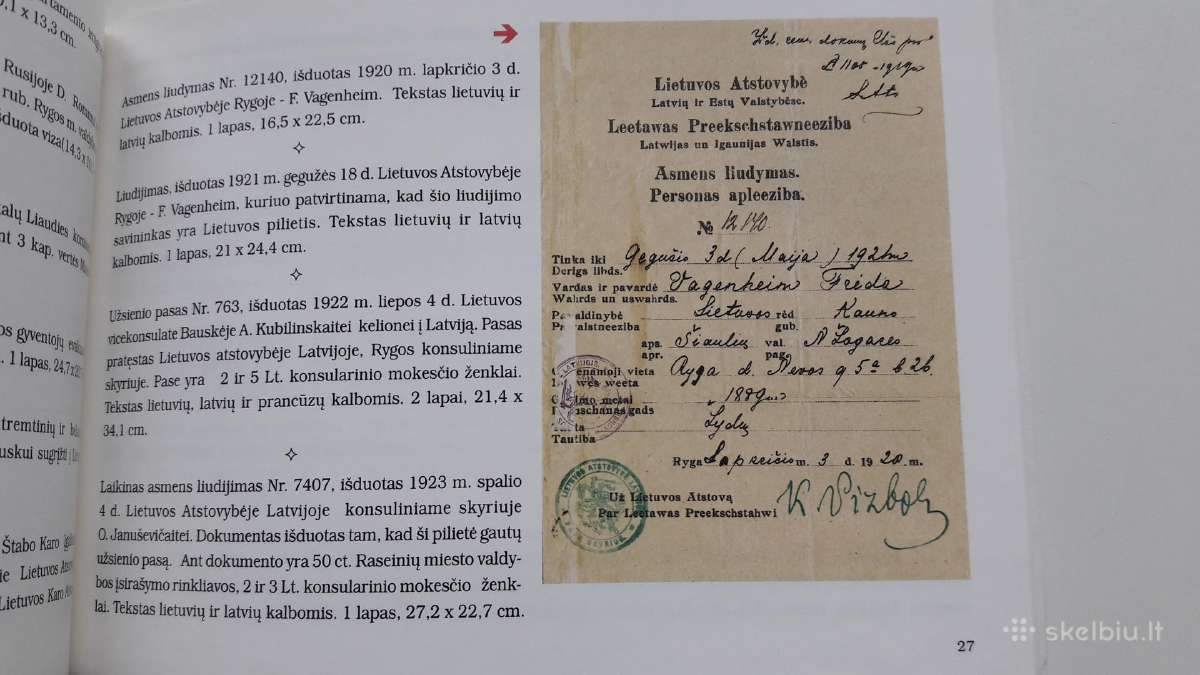 rtamento
0,1 x 13,3 cm.
Rusijoje D.
rub. Rygos m.
šduota viza
kalų Liaudies
nt 3 kap. vertės
os gyventojų
1 lapas, 24,7
tremtinių ir
uskui sugrįžti į
Štabo Karo
je Lietuvos
Lietuvos Karo
Asmens liudymas Nr. 12140, išduotas 1920 m. lapkričio 3 d.
Lietuvos Atstovybėje Rygoje - F. Vagenheim. Tekstas lietuvių ir
latvių kalbomis. 1 lapas, 16,5 x 22,5 cm.
Liudijimas, išduotas 1921 m. gegužės 18 d. Lietuvos Atstovybėje
Rygoje - F. Vagenheim, kuriuo patvirtinama, kad šio liudijimo
savininkas yra Lietuvos pilietis. Tekstas lietuvių ir latvių
kalbomis. 1 lapas, 21 x 24,4 cm.
Užsienio pasas Nr. 763, išduotas 1922 m. liepos 4 d. Lietuvos
vicekonsulate Bauskėje A. Kubilinskaitei kelionei į Latviją. Pasas
pratęstas Lietuvos atstovybėje Latvijoje, Rygos konsuliniame
skyriuje. Pase yra 2 ir 5 Lt. konsularinio mokesčio ženklai.
Tekstas lietuvių, latvių ir prancūzų kalbomis. 2 lapai, 21,4 x
34,1 cm.
Laikinas asmens liudijimas Nr. 7407, išduotas 1923 m. spalio
4 d. Lietuvos Atstovybėje Latvijoje konsuliniame skyriuje
O. Januševičaitei. Dokumentas išduotas tam, kad ši pilietė gautų
užsienio pasą. Ant dokumento yra 50 ct. Raseinių miesto valdy-
bos įsirašymo rinkliavos, 2 ir 3 Lt. konsularinio mokesčio ženk-
lai. Tekstas lietuvių ir latvių kalbomis. 1 lapas, 27,2 x 22,7 cm.
Lietuvos Atstovybė
Latvių ir Estų Valstybėse.
Leetawas Preekschstawneeziba
Latwijas un Igaunijas Walstis.
Asmens liudymas.
Personas apleeziba.
№ 12140.
Tinka iki Gegušio 3 d (Maija) 1921 m
Derigs lihds.
Vardas ir pavardė Vagenheim Frida
Wahrds un uswahrds.
Lietuvos rėd. Kauno
gub.
aps. Šiaulių val. N Žagares
apr. pag.
vieta Ryga d. Nevos g 5a b 2b.
weeta
metai 1889
gads
Žydų
Tautiba
Ryga Lapkričio m. 3 d. 1920 m.
Už Lietuvos Atstovą
Par Leetawas Preekschstahwi
27
skelbiu.lt